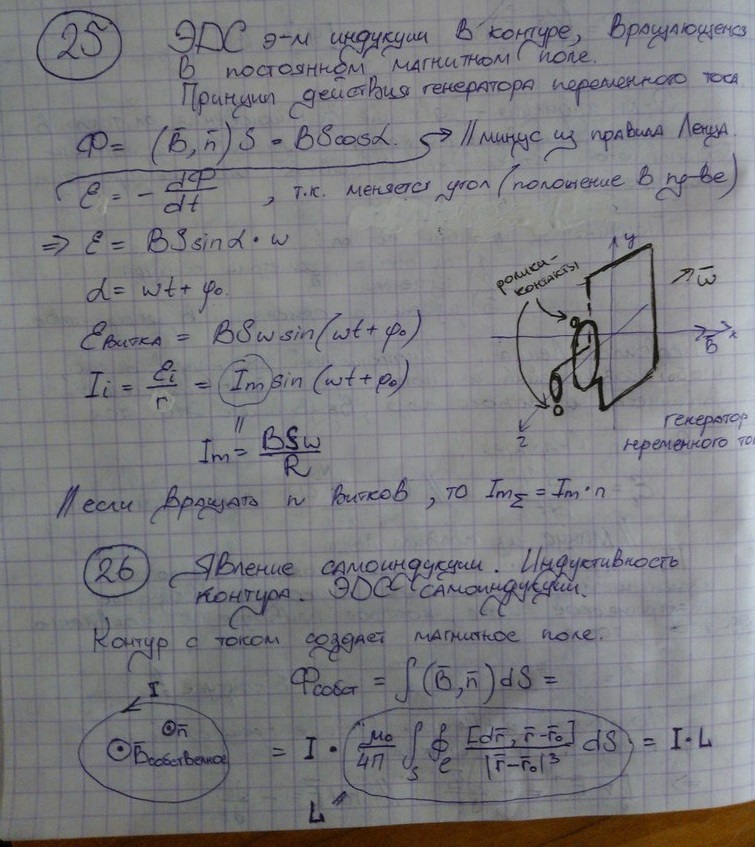 25 ЭДС э-м индукции в контуре, вращающемся
в постоянном магнитном поле.
Принцип действия генератора переменного тока
Ф = (B̄, n̄) S = BScosα. → // минус из правила Ленца.
ℰ = - dФ/dt , т.к. меняется угол (положение в пр-ве)
⇒ ℰ = BSsinα·ω
α = ωt + φ₀.
ℰвитка = BSωsin(ωt + φ₀)
Iᵢ = ℰᵢ/r = Im sin (ωt + φ₀)
"
Im = BSω/R
ролики-
контакты
y
ω̄
B̄ x
z
генератор
переменного то
// если вращать n витков, то ImΣ = Im·n
26 Явление самоиндукции. Индуктивность
контура. ЭДС самоиндукции.
Контур с током создает магнитное поле.
Фсобст = ∫(B̄, n̄) dS =
I
n̄
B̄собственное
= I · μ₀/4π ∫S ∮e [dr̄, r̄-r̄₀]/|r̄-r̄₀|³ dS = I·L
L "